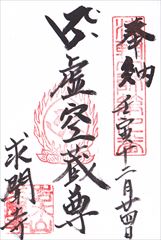 奉納
十二月廿四日
虚空蔵尊
求聞寺